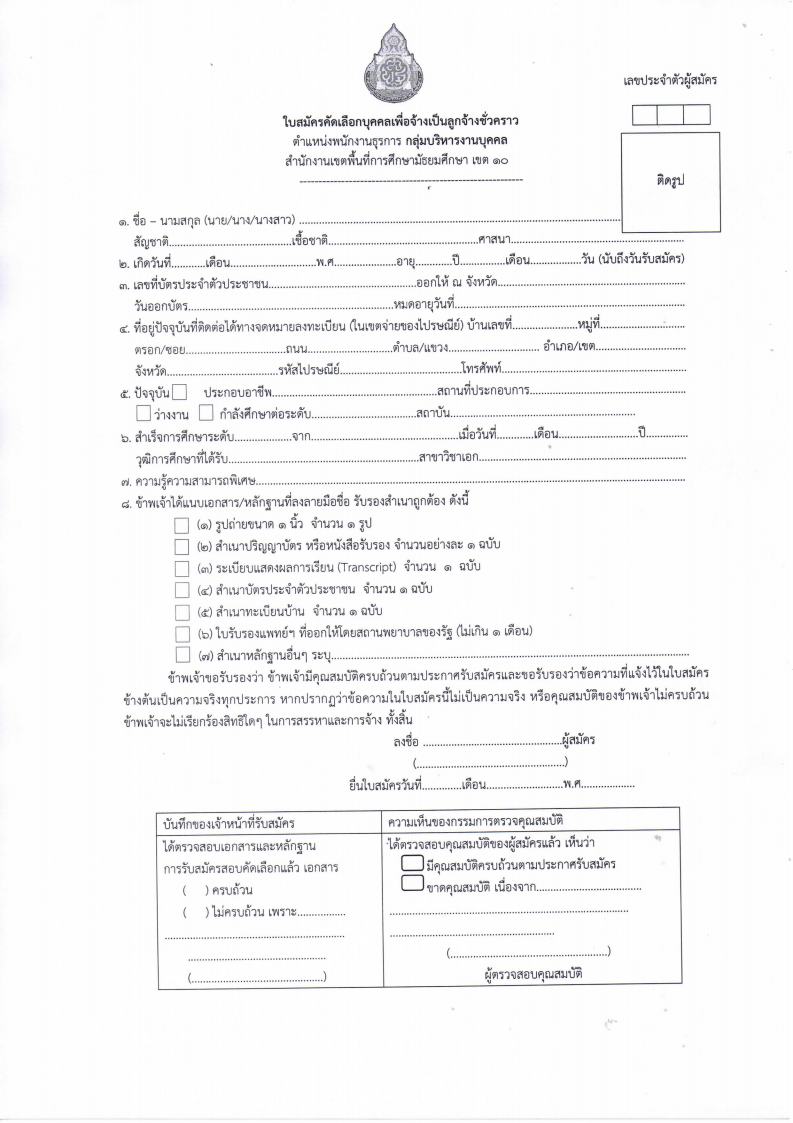 เลขประจำตัวผู้สมัคร
ใบสมัครคัดเลือกบุคคลเพื่อจ้างเป็นลูกจ้างชั่วคราว
ตำแหน่งพนักงานธุรการ กลุ่มบริหารงานบุคคล
สำนักงานเขตพื้นที่การศึกษามัธยมศึกษา เขต ๑๐
ติดรูป
๑. ชื่อ – นามสกุล (นาย/นาง/นางสาว) ..........
สัญชาติ..........เชื้อชาติ..........ศาสนา..........
๒. เกิดวันที่..........เดือน..........พ.ศ..........อายุ..........ปี..........เดือน..........วัน (นับถึงวันรับสมัคร)
๓. เลขที่บัตรประจำตัวประชาชน..........ออกให้ ณ จังหวัด..........
วันออกบัตร..........หมดอายุวันที่..........
๔. ที่อยู่ปัจจุบันที่ติดต่อได้ทางจดหมายลงทะเบียน (ในเขตจ่ายของไปรษณีย์) บ้านเลขที่..........หมู่ที่..........
ตรอก/ซอย..........ถนน..........ตำบล/แขวง.......... อำเภอ/เขต..........
จังหวัด..........รหัสไปรษณีย์..........โทรศัพท์..........
๕. ปัจจุบัน ประกอบอาชีพ..........สถานที่ประกอบการ..........
ว่างงาน กำลังศึกษาต่อระดับ..........สถาบัน..........
๖. สำเร็จการศึกษาระดับ..........จาก..........เมื่อวันที่..........เดือน..........ปี..........
วุฒิการศึกษาที่ได้รับ..........สาขาวิชาเอก..........
๗. ความรู้ความสามารถพิเศษ..........
๘. ข้าพเจ้าได้แนบเอกสาร/หลักฐานที่ลงลายมือชื่อ รับรองสำเนาถูกต้อง ดังนี้
(๑) รูปถ่ายขนาด ๑ นิ้ว จำนวน ๑ รูป
(๒) สำเนาปริญญาบัตร หรือหนังสือรับรอง จำนวนอย่างละ ๑ ฉบับ
(๓) ระเบียบแสดงผลการเรียน (Transcript) จำนวน ๑ ฉบับ
(๔) สำเนาบัตรประจำตัวประชาชน จำนวน ๑ ฉบับ
(๕) สำเนาทะเบียนบ้าน จำนวน ๑ ฉบับ
(๖) ใบรับรองแพทย์ฯ ที่ออกให้โดยสถานพยาบาลของรัฐ (ไม่เกิน ๑ เดือน)
(๗) สำเนาหลักฐานอื่นๆ ระบุ..........
ข้าพเจ้าขอรับรองว่า ข้าพเจ้ามีคุณสมบัติครบถ้วนตามประกาศรับสมัครและขอรับรองว่าข้อความที่แจ้งไว้ในใบสมัคร
ข้างต้นเป็นความจริงทุกประการ หากปรากฏว่าข้อความในใบสมัครนี้ไม่เป็นความจริง หรือคุณสมบัติของข้าพเจ้าไม่ครบถ้วน
ข้าพเจ้าจะไม่เรียกร้องสิทธิใดๆ ในการสรรหาและการจ้าง ทั้งสิ้น
ลงชื่อ ..........ผู้สมัคร
(..........)
ยื่นใบสมัครวันที่..........เดือน..........พ.ศ..........
บันทึกของเจ้าหน้าที่รับสมัคร
ได้ตรวจสอบเอกสารและหลักฐาน
การรับสมัครสอบคัดเลือกแล้ว เอกสาร
( ) ครบถ้วน
( ) ไม่ครบถ้วน เพราะ..........
..........
..........
(..........)
ความเห็นของกรรมการตรวจคุณสมบัติ
ได้ตรวจสอบคุณสมบัติของผู้สมัครแล้ว เห็นว่า
มีคุณสมบัติครบถ้วนตามประกาศรับสมัคร
ขาดคุณสมบัติ เนื่องจาก..........
..........
..........
(..........)
ผู้ตรวจสอบคุณสมบัติ